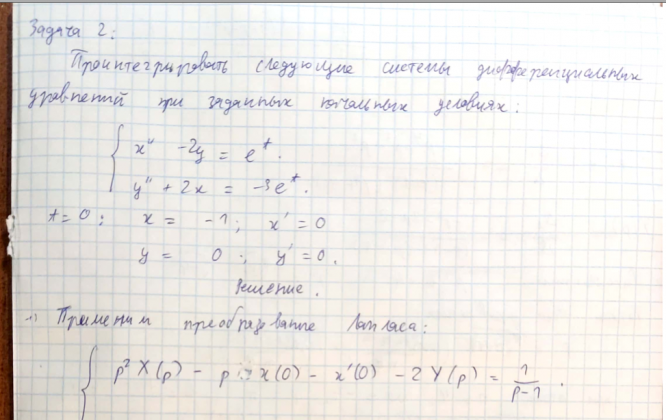 Задача 2:
Проинтегрировать следующие системы дифференциальных
уравнений при заданных начальных условиях:
x'' - 2y = e^t.
y'' + 2x = -3e^t.
t = 0: x = -1; x' = 0
y = 0; y' = 0.
Решение.
Применим преобразование Лапласа:
p² X(p) - p x(0) - x'(0) - 2 Y(p) = 1/(p-1).